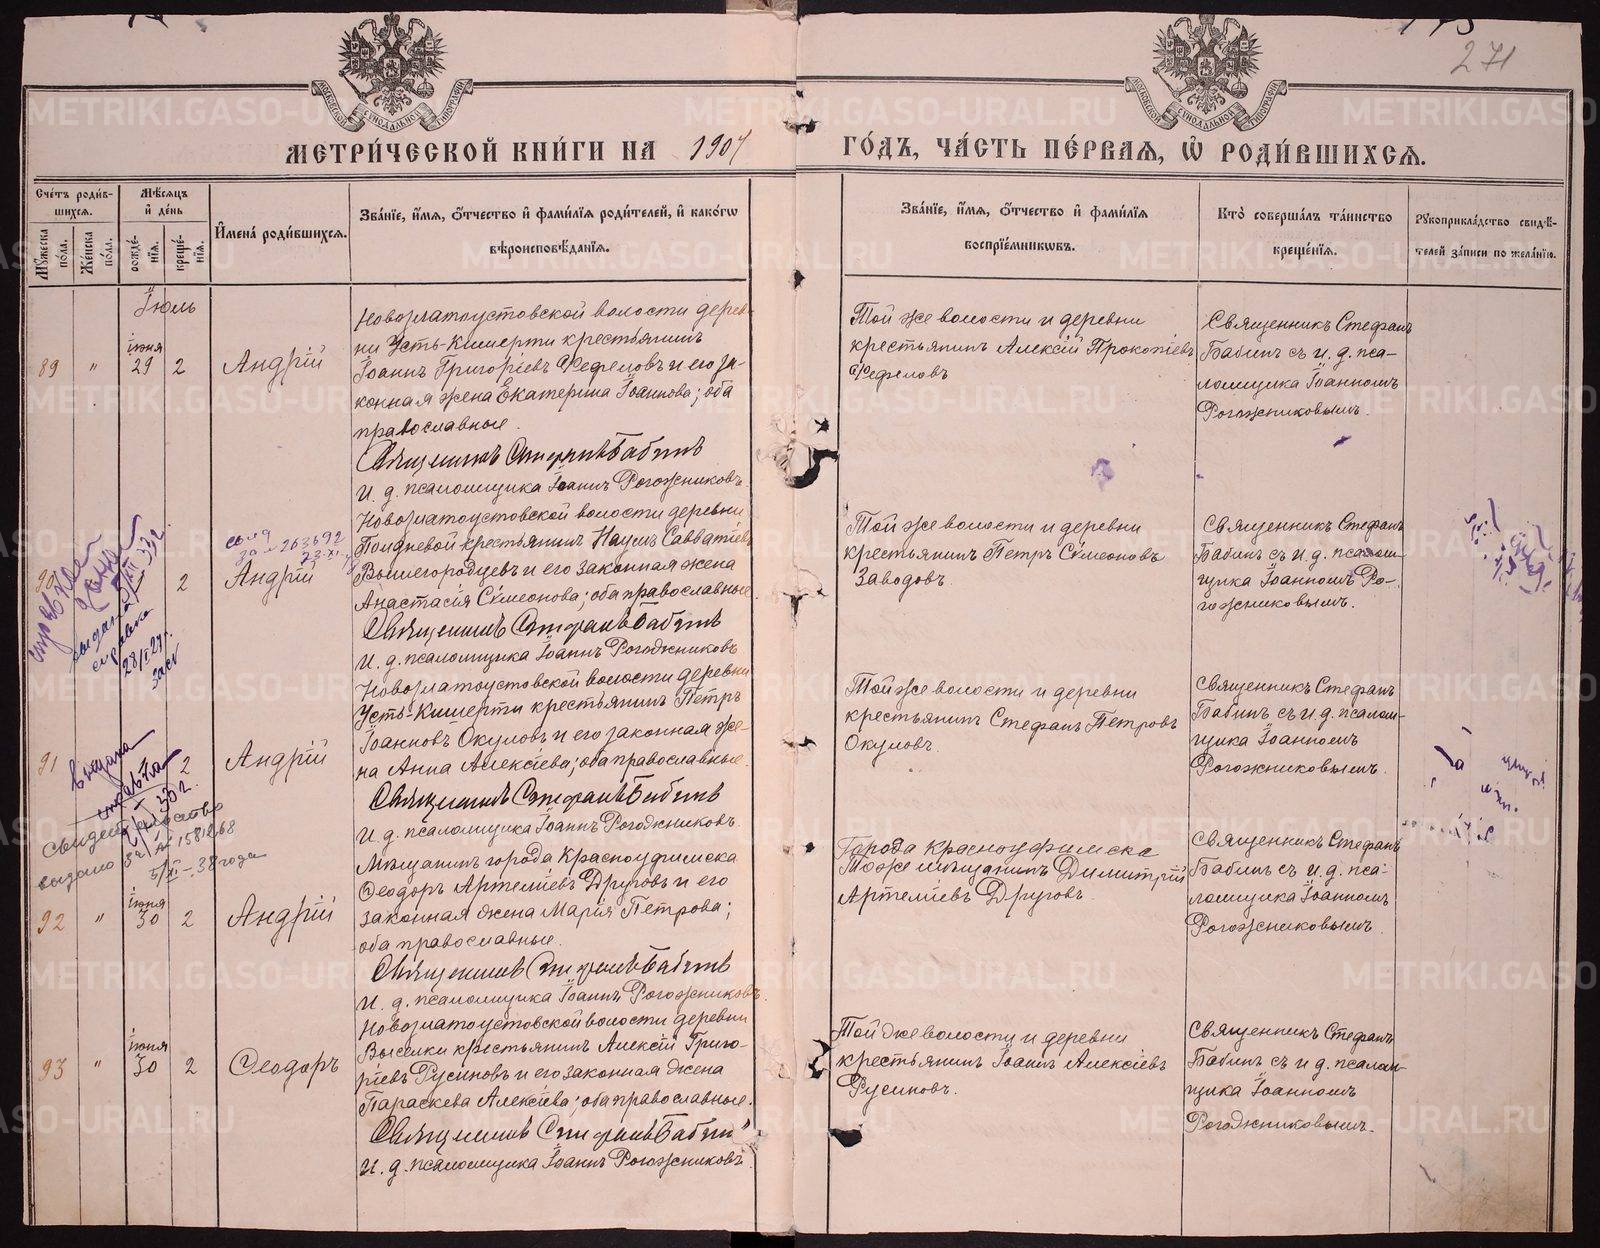 271
МОСКОВСКОЙ СѴНОДАЛЬНОЙ ТИПОГРАФІИ
МОСКОВСКОЙ СѴНОДАЛЬНОЙ ТИПОГРАФІИ
МЕТРИ́ЧЕСКОЙ КНИ́ГИ НА 1907 ГО́ДЪ, ЧА́СТЬ ПЕ́РВАѦ, Ѡ҆ РОДИ́ВШИХСѦ.
Сче́тъ роди́в-
шихсѧ.
Мꙋжеска по́ла.
Же́нска по́ла.
Мѣ́сѧцъ
и҆ де́нь
рожде́-
нїѧ.
креще́-
нїѧ.
И҆мена̀ роди́вшихсѧ.
Зва́нїе, и҆́мѧ, ѻ҆́тчество и҆ фами́лїѧ роди́телей, и҆ како́гѡ
вѣроисповѣ́данїѧ.
Зва́нїе, и҆́мѧ, ѻ҆́тчество и҆ фами́лїѧ
воспрїе́мникѡвъ.
Кто̀ соверша́лъ та́инство
креще́нїѧ.
Рꙋкоприкла́дство свидѣ́-
телей за́писи по жела́нїю.
Іюль
89 " іюня 29 2 Андрій
Новозлатоустовской волости дерев-
ни Усть-Кишерти крестьянинъ
Іоаннъ Григоріевъ Фефеловъ и его за-
конная жена Екатерина Іоаннова; оба
православные.
Священникъ Стефанъ Бабинъ
И. д. псаломщика Іоаннъ Рогожниковъ.
Той же волости и деревни
крестьянинъ Алексій Прокопіевъ
Фефеловъ
Священникъ Стефанъ
Бабинъ съ и. д. пса-
ломщика Іоанномъ
Рогожниковымъ.
90 2 Андрій
выдана
справка
28/I 27г.
Новозлатоустовской волости деревни
Полдневой крестьянинъ Наумъ Савватіевъ
Вышегородцевъ и его законная жена
Анастасія Сѵмеонова; оба православные.
Священникъ Стефанъ Бабинъ
И. д. псаломщика Іоаннъ Рогожниковъ
Той же волости и деревни
крестьянинъ Петръ Сѵмеоновъ
Заводовъ
Священникъ Стефанъ
Бабинъ съ и. д. псалом-
щика Іоанномъ Ро-
гожниковымъ.
91 2 Андрій
Выдана
справка
Новозлатоустовской волости деревни
Усть-Кишерти крестьянинъ Петръ
Іоанновъ Окуловъ и его законная же-
на Анна Алексіева; оба православные.
Священникъ Стефанъ Бабинъ
И. д. псаломщика Іоаннъ Рогожниковъ.
Той же волости и деревни
крестьянинъ Стефанъ Петровъ
Окуловъ.
Священникъ Стефанъ
Бабинъ съ и. д. псалом-
щика Іоанномъ
Рогожниковымъ.
Свидетельство
выдано за № 1581268
5/XI - 38 года
92 " іюня 30 2 Андрій
Мѣщанинъ города Красноуфимска
Ѳеодоръ Артеміевъ Друговъ и его
законная жена Марія Петрова;
оба православные.
Священникъ Стефанъ Бабинъ
И. д. псаломщика Іоаннъ Рогожниковъ.
Города Красноуфимска
Тоже мѣщанинъ Димитрій
Артеміевъ Друговъ.
Священникъ Стефанъ
Бабинъ съ и. д. пса-
ломщика Іоанномъ
Рогожниковымъ.
93 " іюня 30 2 Ѳеодоръ
Новозлатоустовской волости деревни
Выселки крестьянинъ Алексій Григо-
ріевъ Русиновъ и его законная жена
Параскева Алексіева; оба православные.
Священникъ Стефанъ Бабинъ
И. д. псаломщика Іоаннъ Рогожниковъ.
Той же волости и деревни
крестьянинъ Іоаннъ Алексіевъ
Русиновъ.
Священникъ Стефанъ
Бабинъ съ и. д. псалом-
щика Іоанномъ
Рогожниковымъ.
METRIKI.GASO-URAL.RU